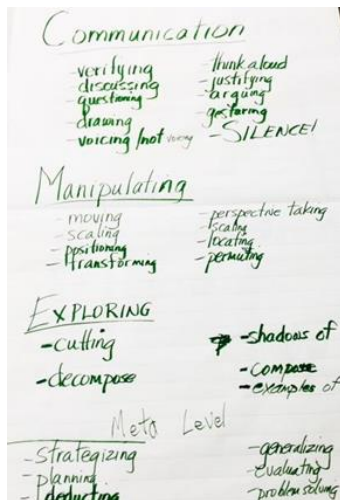 Communication
- verifying
- discussing
- questioning
- drawing
- voicing /not voicing
- think aloud
- justifying
- arguing
- gesturing
- SILENCE!
Manipulating
- moving
- scaling
- positioning
- transforming
- perspective taking
- scaling
- locating
- permuting
EXPLORING
- cutting
- decompose
- shadows of
- compose
- examples of
Meta Level
- strategizing
- planning
- deducting
- generalizing
- evaluating
- problem solving